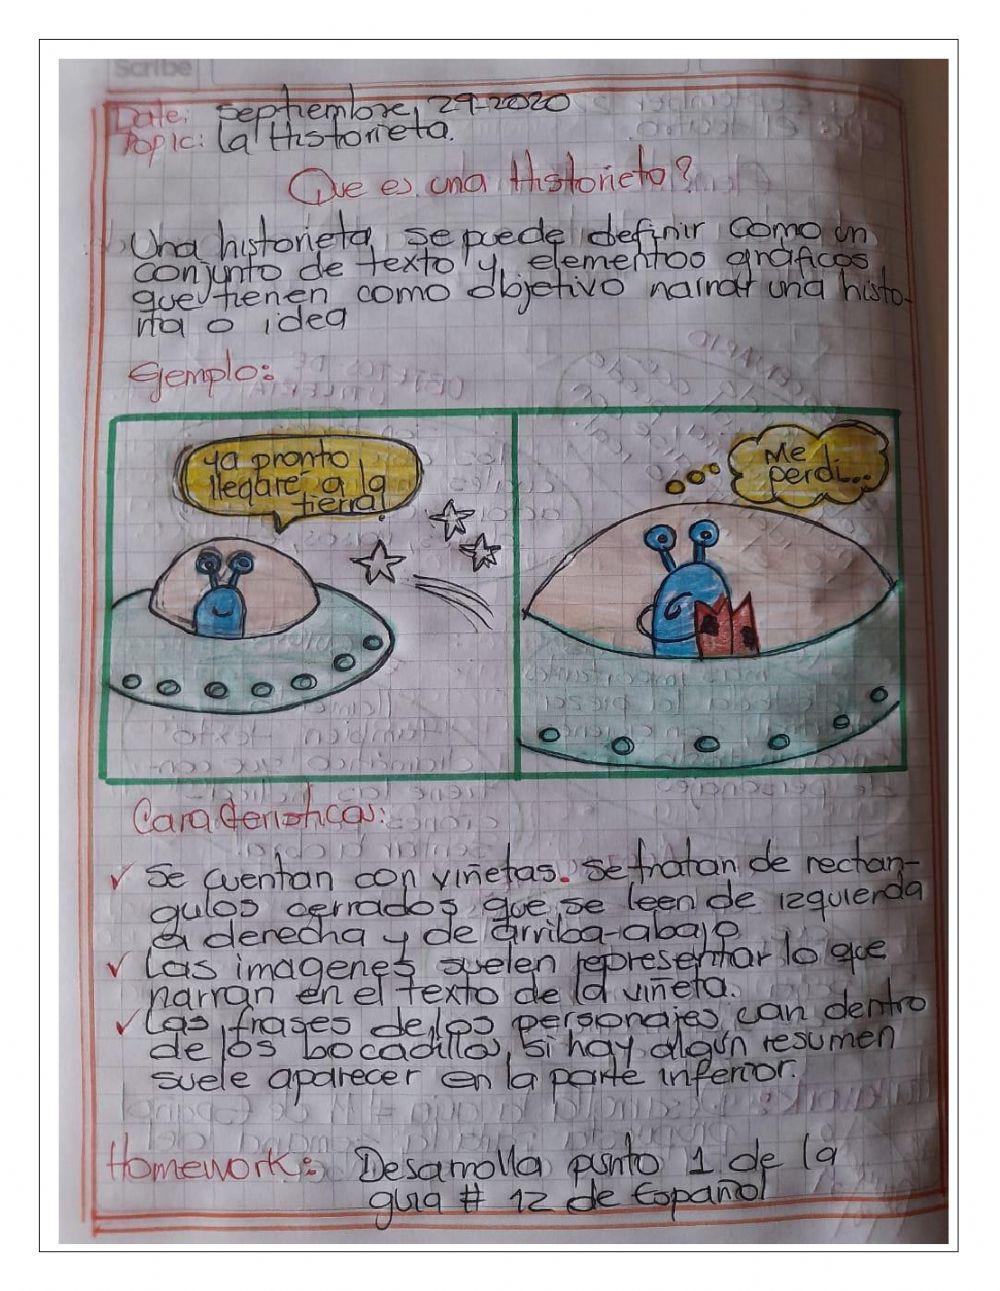 Scribe
Date: septiembre, 29-2020
Topic: La Historieta.
Que es una Historieta?
Una historieta, se puede definir como un
conjunto de texto y elementos gráficos
que tienen como objetivo narrar una histo-
ria o idea
Ejemplo:
ya pronto
llegaré a la
tierra!
Me
perdi...
Caracteristicas:
✓ Se cuentan con viñetas. Se tratan de rectan-
gulos cerrados, que se leen de izquierda
a derecha y de arriba-abajo
✓ Las imagenes suelen representar lo que
narran en el texto de la viñeta.
✓ Las frases de los personajes van dentro
de los bocadillos, si hay algún resumen
suele aparecer en la parte inferior.
Homework: Desarrolla punto 1 de la
guia # 12 de Español